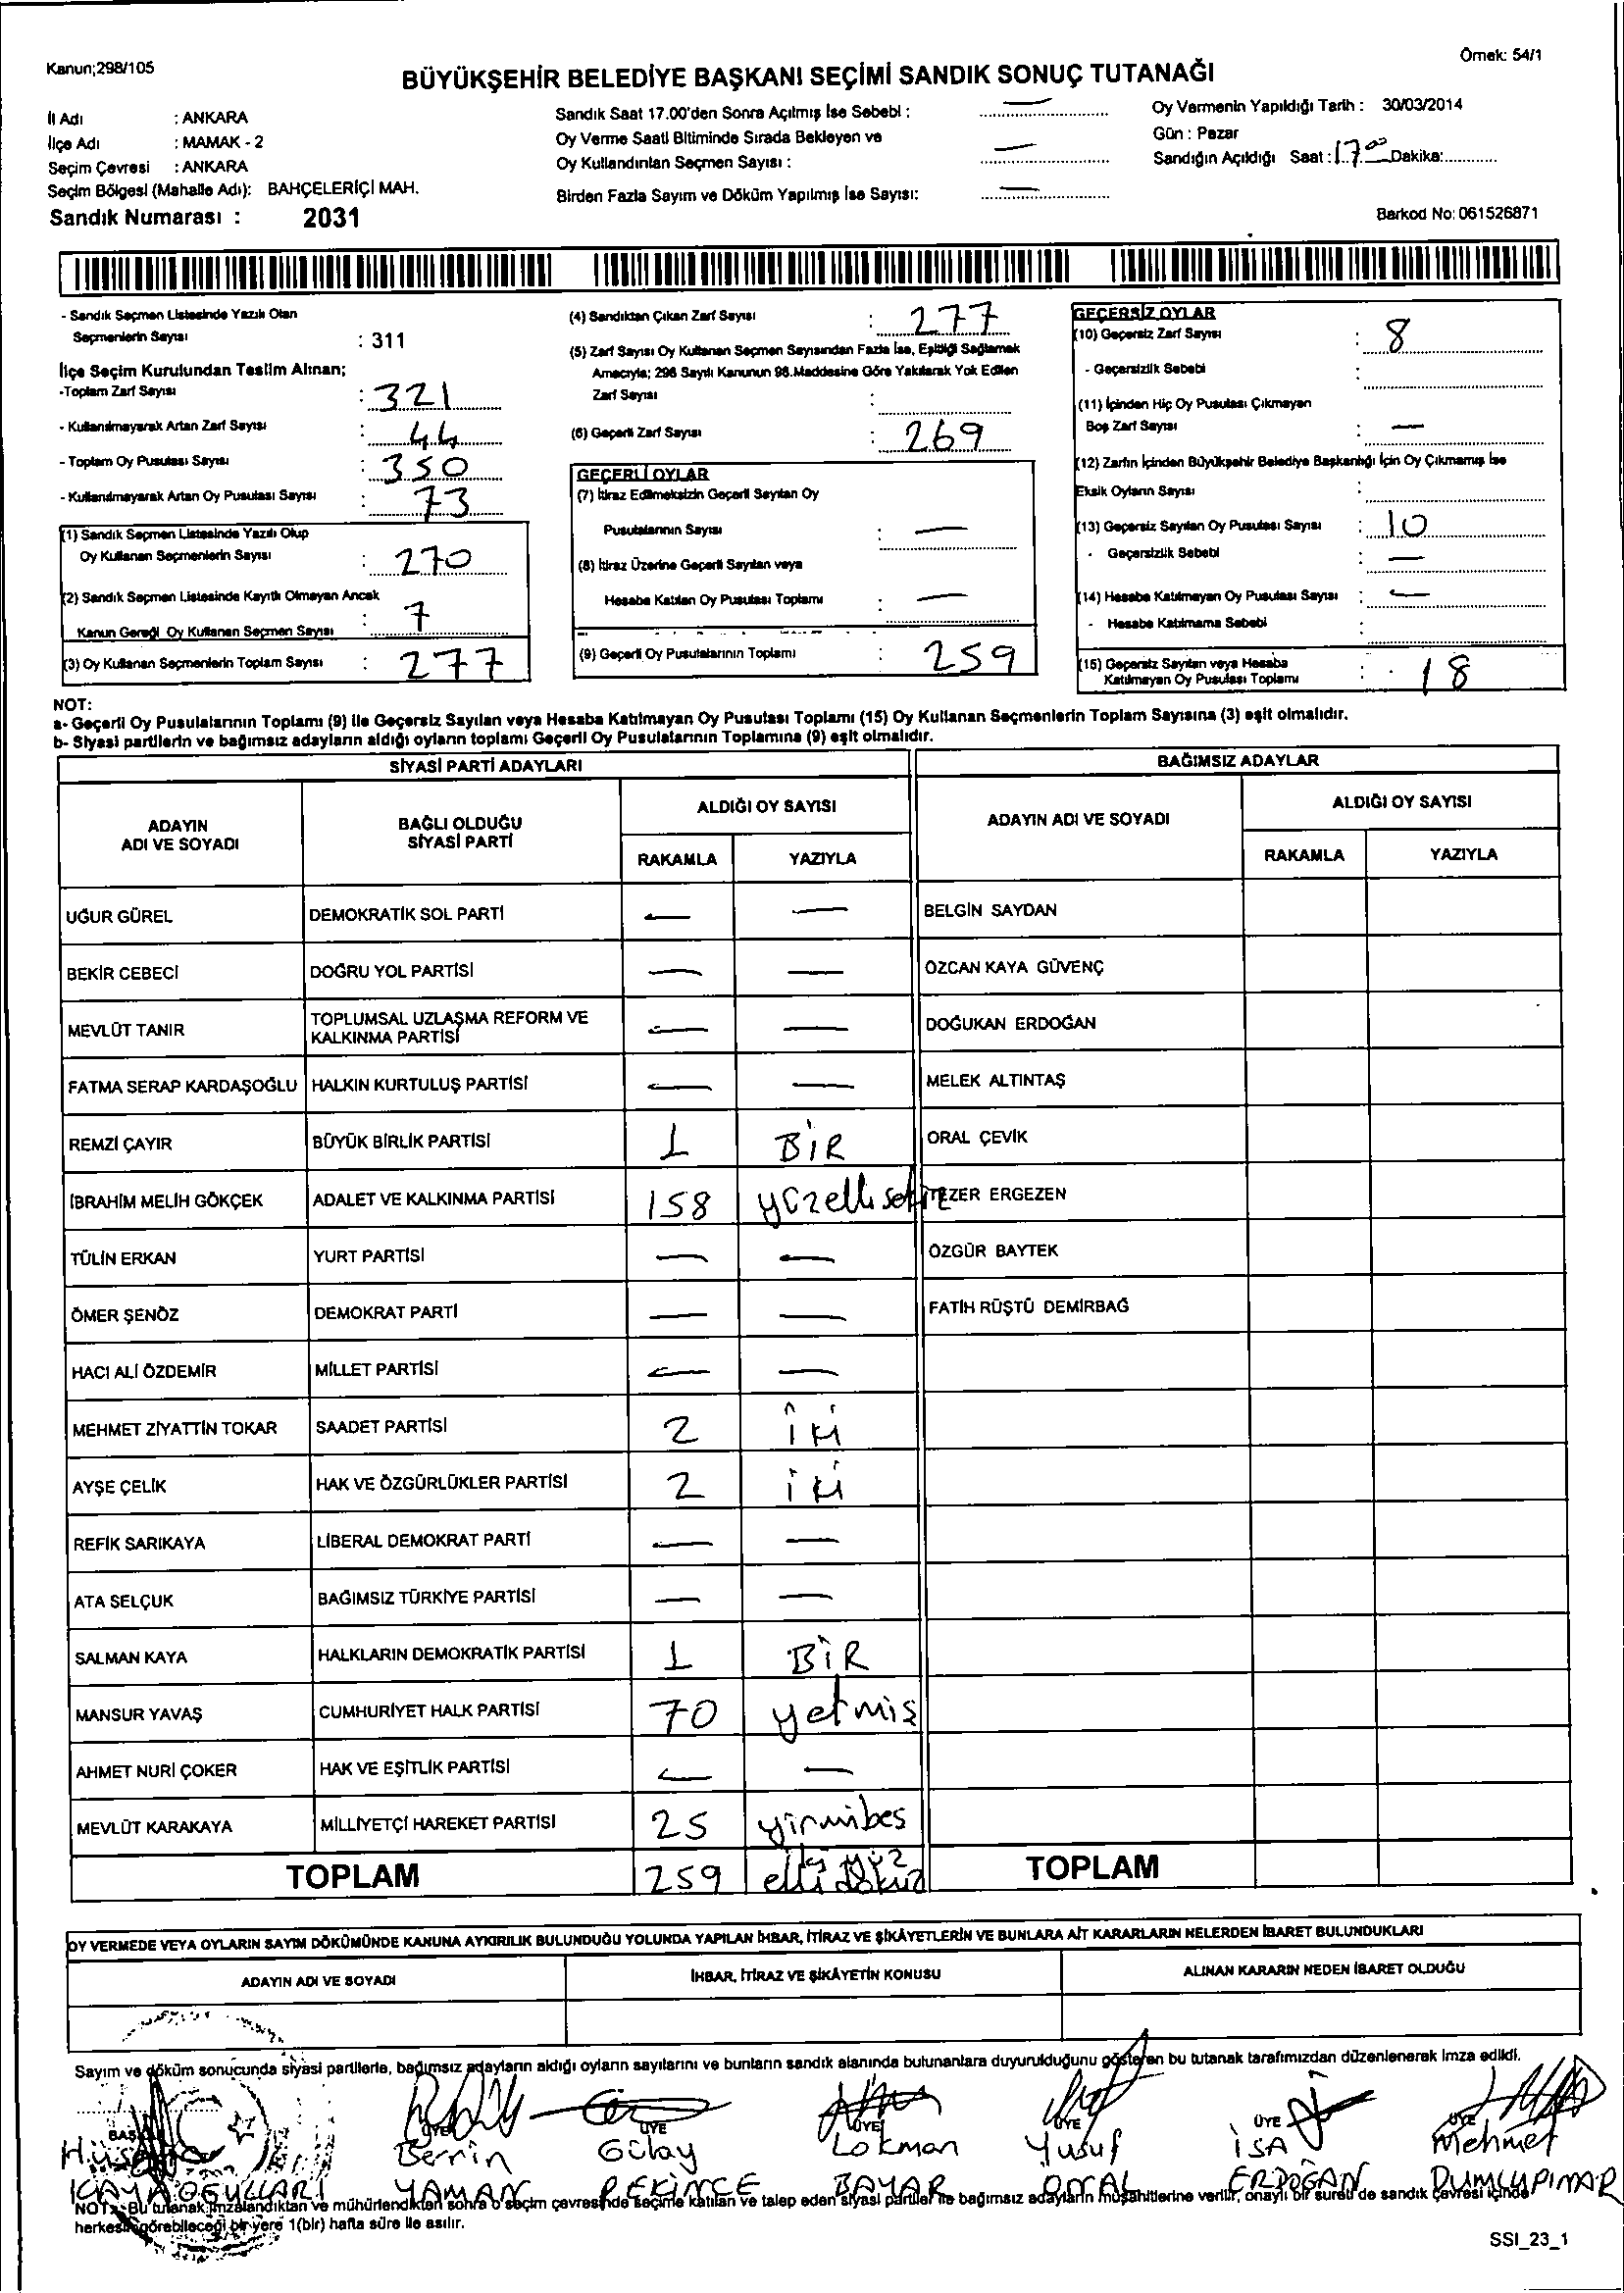 Kanun;298/105
Örnek: 54/1
BÜYÜKŞEHİR BELEDİYE BAŞKANI SEÇİMİ SANDIK SONUÇ TUTANAĞI
İl Adı : ANKARA
İlçe Adı : MAMAK - 2
Seçim Çevresi : ANKARA
Seçim Bölgesi (Mahalle Adı): BAHÇELERİÇİ MAH.
Sandık Numarası : 2031
Sandık Saat 17.00'den Sonra Açılmış İse Sebebi : —
Oy Verme Saati Bitiminde Sırada Bekleyen ve
Oy Kullandırılan Seçmen Sayısı : —
Birden Fazla Sayım ve Döküm Yapılmış İse Sayısı: —
Oy Vermenin Yapıldığı Tarih : 30/03/2014
Gün : Pazar
Sandığın Açıldığı Saat : 17 00 Dakika:
Barkod No: 061526871
- Sandık Seçmen Listesinde Yazılı Olan
Seçmenlerin Sayısı : 311
İlçe Seçim Kurulundan Teslim Alınan;
-Toplam Zarf Sayısı : 321
- Kullanılmayarak Artan Zarf Sayısı : 44
- Toplam Oy Pusulası Sayısı : 350
- Kullanılmayarak Artan Oy Pusulası Sayısı : 73
(1) Sandık Seçmen Listesinde Yazılı Olup
Oy Kullanan Seçmenlerin Sayısı : 270
(2) Sandık Seçmen Listesinde Kayıtlı Olmayan Ancak
Kanun Gereği Oy Kullanan Seçmen Sayısı : 7
(3) Oy Kullanan Seçmenlerin Toplam Sayısı : 277
(4) Sandıktan Çıkan Zarf Sayısı : 277
(5) Zarf Sayısı Oy Kullanan Seçmen Sayısından Fazla İse, Eşitliği Sağlamak
Amacıyla; 298 Sayılı Kanunun 98.Maddesine Göre Yakılarak Yok Edilen
Zarf Sayısı :
(6) Geçerli Zarf Sayısı : 269
GEÇERLİ OYLAR
(7) İtiraz Edilmeksizin Geçerli Sayılan Oy
Pusulalarının Sayısı : —
(8) İtiraz Üzerine Geçerli Sayılan veya
Hesaba Katılan Oy Pusulası Toplamı : —
(9) Geçerli Oy Pusulalarının Toplamı : 259
GEÇERSİZ OYLAR
(10) Geçersiz Zarf Sayısı : 8
- Geçersizlik Sebebi :
(11) İçinden Hiç Oy Pusulası Çıkmayan
Boş Zarf Sayısı : —
(12) Zarfın İçinden Büyükşehir Belediye Başkanlığı İçin Oy Çıkmamış İse
Eksik Oyların Sayısı :
(13) Geçersiz Sayılan Oy Pusulası Sayısı : 10
- Geçersizlik Sebebi : —
(14) Hesaba Katılmayan Oy Pusulası Sayısı : —
- Hesaba Katılmama Sebebi :
(15) Geçersiz Sayılan veya Hesaba
Katılmayan Oy Pusulası Toplamı : 18
NOT:
a- Geçerli Oy Pusulalarının Toplamı (9) ile Geçersiz Sayılan veya Hesaba Katılmayan Oy Pusulası Toplamı (15) Oy Kullanan Seçmenlerin Toplam Sayısına (3) eşit olmalıdır.
b- Siyasi partilerin ve bağımsız adayların aldığı oyların toplamı Geçerli Oy Pusulalarının Toplamına (9) eşit olmalıdır.
SİYASİ PARTİ ADAYLARI
BAĞIMSIZ ADAYLAR
ADAYIN ADI VE SOYADI
BAĞLI OLDUĞU SİYASİ PARTİ
ALDIĞI OY SAYISI
RAKAMLA YAZIYLA
ADAYIN ADI VE SOYADI
ALDIĞI OY SAYISI
RAKAMLA YAZIYLA
UĞUR GÜREL DEMOKRATİK SOL PARTİ — — BELGİN SAYDAN
BEKİR CEBECİ DOĞRU YOL PARTİSİ — — ÖZCAN KAYA GÜVENÇ
MEVLÜT TANIR TOPLUMSAL UZLAŞMA REFORM VE KALKINMA PARTİSİ — — DOĞUKAN ERDOĞAN
FATMA SERAP KARDAŞOĞLU HALKIN KURTULUŞ PARTİSİ — — MELEK ALTINTAŞ
REMZİ ÇAYIR BÜYÜK BİRLİK PARTİSİ 1 BİR ORAL ÇEVİK
İBRAHİM MELİH GÖKÇEK ADALET VE KALKINMA PARTİSİ 158 yüzellisekiz TEZER ERGEZEN
TÜLİN ERKAN YURT PARTİSİ — — ÖZGÜR BAYTEK
ÖMER ŞENÖZ DEMOKRAT PARTİ — — FATİH RÜŞTÜ DEMİRBAĞ
HACI ALİ ÖZDEMİR MİLLET PARTİSİ — —
MEHMET ZİYATTİN TOKAR SAADET PARTİSİ 2 iki
AYŞE ÇELİK HAK VE ÖZGÜRLÜKLER PARTİSİ 2 iki
REFİK SARIKAYA LİBERAL DEMOKRAT PARTİ — —
ATA SELÇUK BAĞIMSIZ TÜRKİYE PARTİSİ — —
SALMAN KAYA HALKLARIN DEMOKRATİK PARTİSİ 1 BİR
MANSUR YAVAŞ CUMHURİYET HALK PARTİSİ 70 yetmiş
AHMET NURİ ÇOKER HAK VE EŞİTLİK PARTİSİ — —
MEVLÜT KARAKAYA MİLLİYETÇİ HAREKET PARTİSİ 25 yirmibes
TOPLAM 259 iki yüz elli dokuz TOPLAM
OY VERMEDE VEYA OYLARIN SAYIM DÖKÜMÜNDE KANUNA AYKIRILIK BULUNDUĞU YOLUNDA YAPILAN İHBAR, İTİRAZ VE ŞİKÂYETLERİN VE BUNLARA AİT KARARLARIN NELERDEN İBARET BULUNDUKLARI
ADAYIN ADI VE SOYADI İHBAR, İTİRAZ VE ŞİKÂYETİN KONUSU ALINAN KARARIN NEDEN İBARET OLDUĞU
Sayım ve döküm sonucunda siyasi partilerle, bağımsız adayların aldığı oyların sayılarını ve bunların sandık alanında bulunanlara duyurulduğunu gösteren bu tutanak tarafımızdan düzenlenerek imza edildi.
ÜYE ÜYE ÜYE ÜYE ÜYE ÜYE
Berrin Gülay Lokman Yusuf İSA Mehmet
KAYAOĞULLARI YAMAN PEKİNCE BAYAR ÖNAL ERDOĞAN DUMLUPINAR
NOT: Bu tutanak imzalandıktan ve mühürlendikten sonra o seçim çevresinde seçime katılan ve talep eden siyasi partiler ile bağımsız adayların müşahitlerine verilir, onaylı bir sureti de sandık çevresi içinde
herkesin görebileceği bir yere 1(bir) hafta süre ile asılır.
SSI_23_1